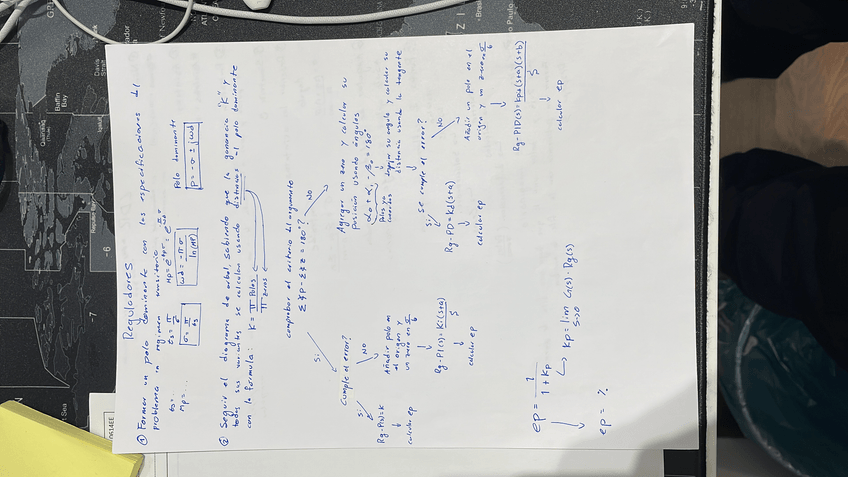 Reguladores
① Formar un polo dominante con las especificaciones del
problema en regimen transitorio
ts = ...
Mp = ...
ts = π/σ
σ = π/ts
Mp = e^
ωd = -πσ / ln(Mp)
Polo dominante
p = -σ ± jωd
② Seguir el diagrama de arbol, sabiendo que la ganancia "K" y
todas sus variantes se calculan usando distancias al polo dominante
con la formula: K = π Polos / π zeros
comprobar el criterio del argumento
Σ∢P - Σ∢z = 180°?
Si
NO
Cumple el error?
Si
NO
Rg-P(s)=K
↓
calcular ep
Añadir polo en
el origen y
un zero en σ/6
↓
Rg-PI(s)= Ki(s+a)/s
↓
calcular ep
Agregar un zero y calcular su
posición usando ángulos
αo + α1 - βo = 180°
Polos ya
conocidos
↓
despejar su angulo y calcular su
distancia usando la tangente
↓
se cumple el error?
Si
NO
Rg-PD=Kd(s+a)
↓
calcular ep
Añadir un polo en el
origen y un zero en σ/6
↓
Rg-PID(s)= (s+a)(s+b)/s
↓
calcular ep
ep = 1 / 1+Kp
↳ Kp = lim G(s)·Rg(s)
s→0
ep = %
-6
-7
Sea
Baffin
Bay
Davis
Strait